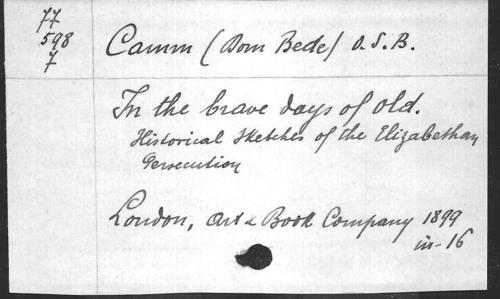 77
598
7
Camm (Dom Bede) O.S.B.
In the brave days of old.
Historical Sketches of the Elizabethan
Persecution
London, Art & Book Company 1899
in-16